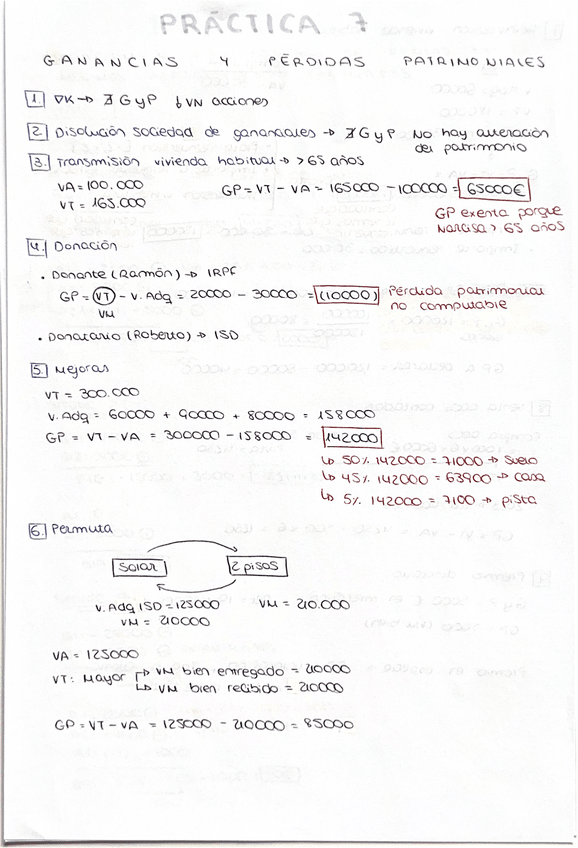 PRÁCTICA 7
GANANCIAS Y PÉRDIDAS PATRIMONIALES
1. ∇K → ∄ G y P ↓ VN acciones
2. Disolución sociedad de gananciales → ∄ G y P No hay alteración
del patrimonio
3. Transmisión vivienda habitual → > 65 años
VA = 100.000
VT = 165.000
GP = VT - VA = 165000 - 100000 = 65000€
GP exenta porque
Narcisa > 65 años
4. Donación
• Donante (Ramón) → IRPF
GP = VT - V. Adq = 20000 - 30000 = (10000) Pérdida patrimonial
no computable
VM
• Donatario (Roberto) → ISD
5. Mejoras
VT = 300.000
V. Adq = 60000 + 90000 + 80000 = 158000
GP = VT - VA = 300000 - 158000 = 142000
↳ 50% 142000 = 71000 → suelo
↳ 45% 142000 = 63900 → casa
↳ 5% 142000 = 7100 → pista
6. Permuta
Solar 2 pisos
V. Adq ISD = 125000 VM = 210.000
VM = 210000
VA = 125000
VT: Mayor ↱ VM bien entregado = 210000
↳ VM bien recibido = 210000
GP = VT - VA = 125000 - 210000 = 85000